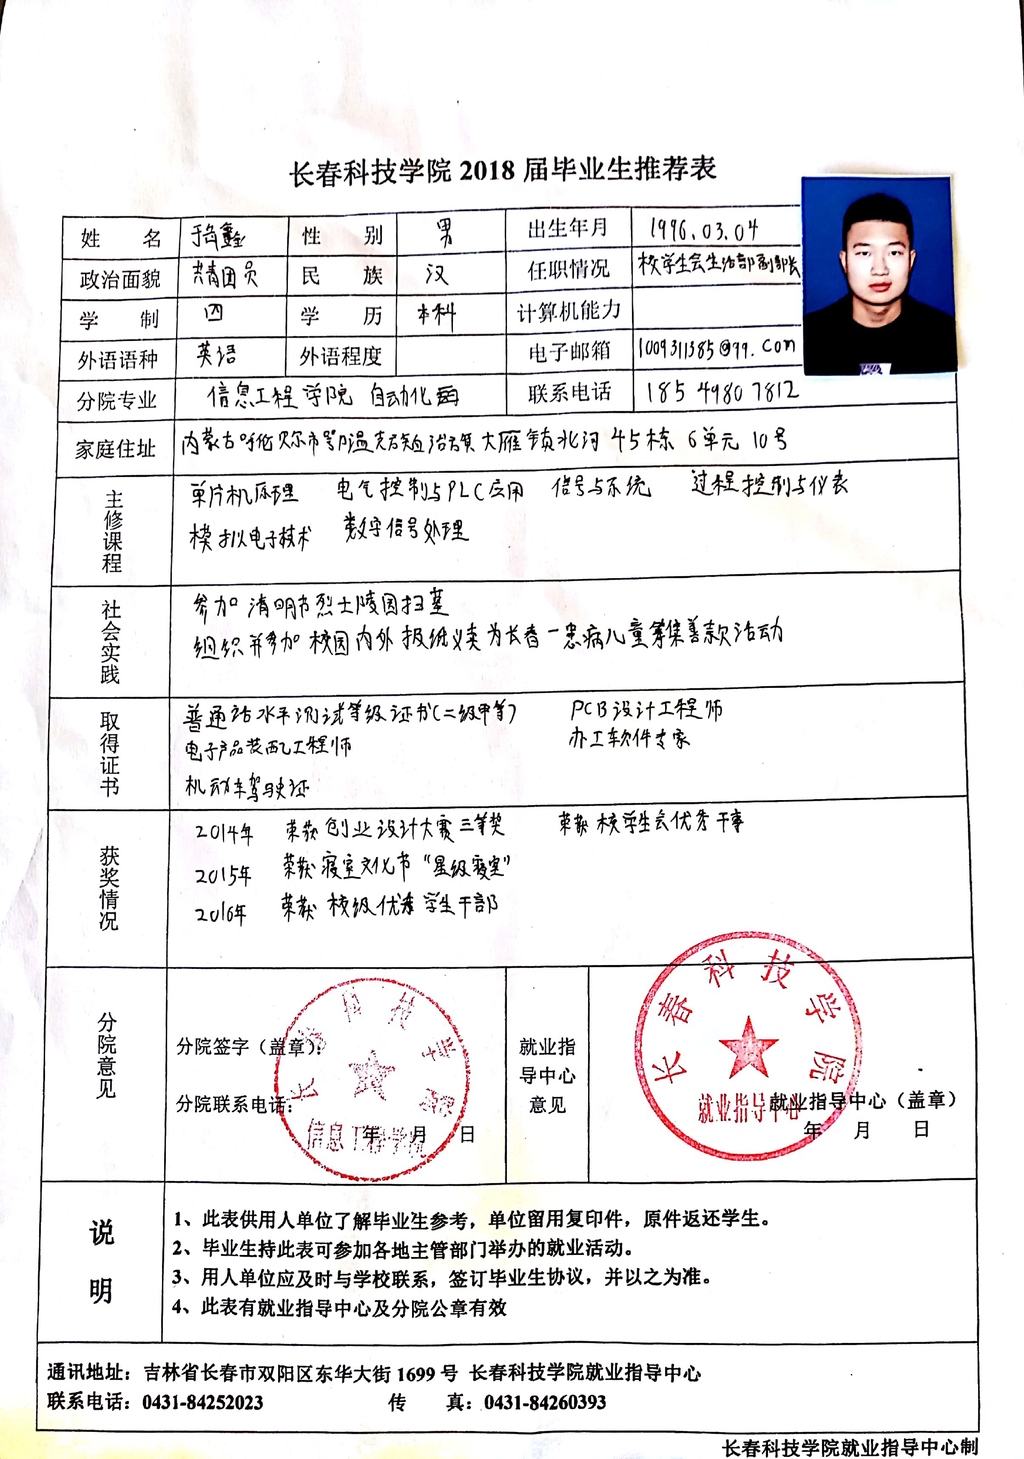 长春科技学院 2018 届毕业生推荐表
姓 名 于 鑫 性 别 男 出生年月 1996.03.04
政治面貌 共青团员 民 族 汉 任职情况 校学生会生活部副部长
学 制 四 学 历 本科 计算机能力
外语语种 英语 外语程度 电子邮箱 1009311385@qq.com
分院专业 信息工程学院 自动化 联系电话 185 4980 7812
家庭住址 内蒙古呼伦贝尔市鄂温克族自治旗大雁镇北河45栋6单元10号
主修课程 单片机原理 电气控制与PLC应用 信号与系统 过程控制与仪表
模拟电子技术 数字信号处理
社会实践 参加清明节烈士陵园扫墓
组织并参加校园内外报纸义卖为长春一患病儿童筹集善款活动
取得证书 普通话水平测试等级证书(二级甲等) PCB设计工程师
电子产品装配工程师 办公软件专家
机动车驾驶证
获奖情况 2014年 荣获创业设计大赛三等奖 荣获校学生会优秀干事
2015年 荣获寝室文化节“星级寝室”
2016年 荣获校级优秀学生干部
分院意见 分院签字（盖章）：
分院联系电话：
年 月 日
长春科技学院
信息工程学院
就业指导中心意见
长春科技学院
就业指导中心
就业指导中心（盖章）
年 月 日
说明
1、此表供用人单位了解毕业生参考，单位留用复印件，原件返还学生。
2、毕业生持此表可参加各地主管部门举办的就业活动。
3、用人单位应及时与学校联系，签订毕业生协议，并以之为准。
4、此表有就业指导中心及分院公章有效
通讯地址：吉林省长春市双阳区东华大街 1699 号 长春科技学院就业指导中心
联系电话：0431-84252023 传 真：0431-84260393
长春科技学院就业指导中心制